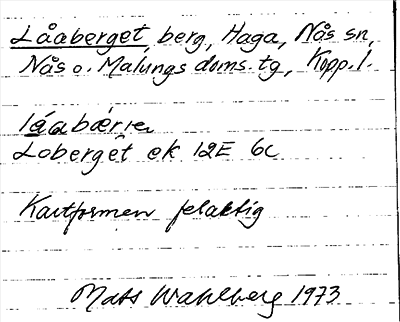 Låaberget, berg, Haga, Nås sn,
Nås o. Malungs doms. tg, Kopp. l.
låabær̥ɪe
Loberget ek 12E 6c
Kartformen felaktig
Mats Wahlberg 1973